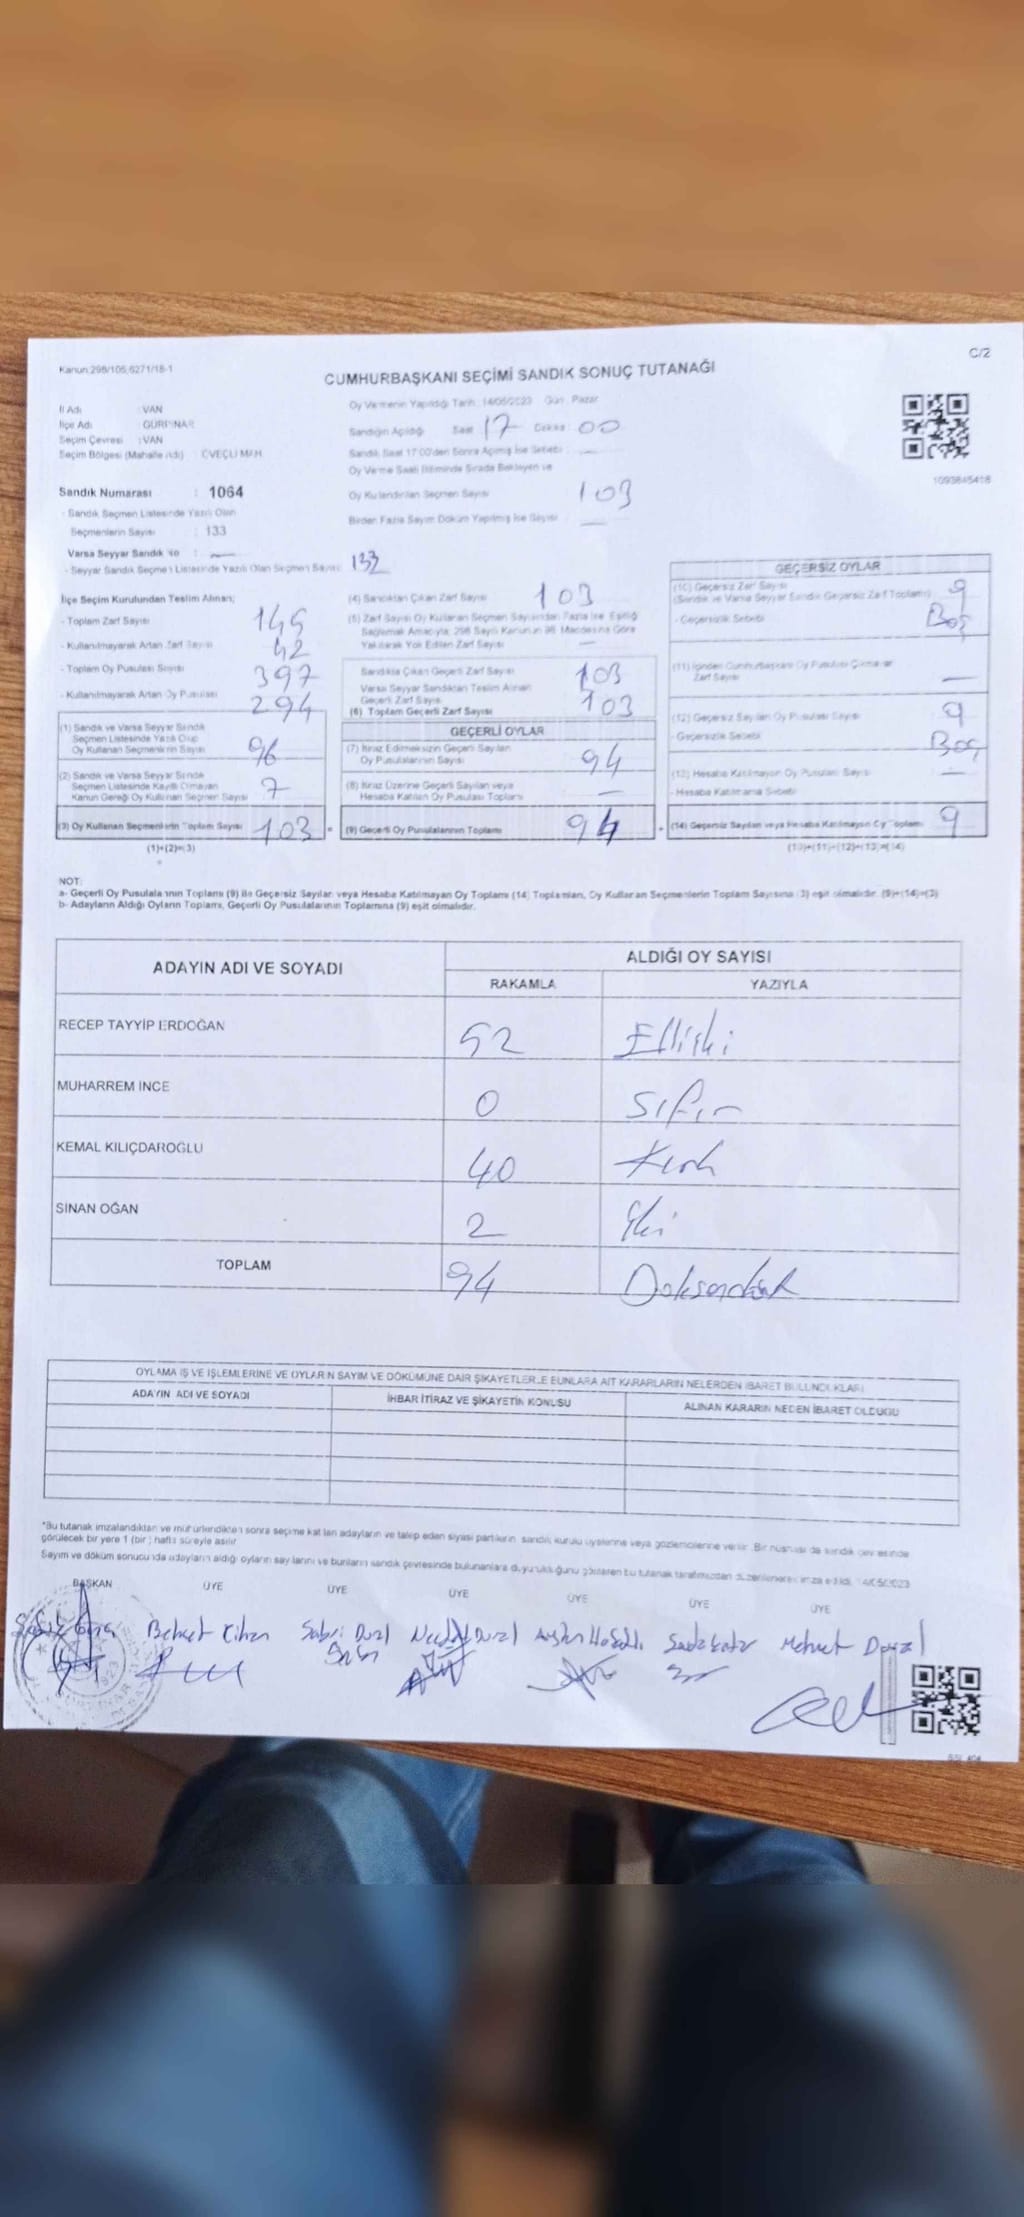 Kanun:298/105,6271/18-1
C/2
CUMHURBAŞKANI SEÇİMİ SANDIK SONUÇ TUTANAĞI
İl Adı : VAN
İlçe Adı : GÜRPINAR
Seçim Çevresi : VAN
Seçim Bölgesi (Mahalle Adı) :
Sandık Numarası : 1064
- Sandık Seçmen Listesinde Yazılı Olan
Seçmenlerin Sayısı : 133
Varsa Seyyar Sandık No : —
- Seyyar Sandık Seçmen Listesinde Yazılı Olan Seçmen Sayısı: 133
Oy Vermenin Yapıldığı Tarih : 14/05/2023 Gün : Pazar
Sandığın Açıldığı Saat 17 Dakika : 00
Sandık Saat 17:00'den Sonra Açılmış İse Sebebi : —
Oy Verme Saati Bitiminde Sırada Bekleyen ve
Oy Kullandırılan Seçmen Sayısı 103
Birden Fazla Sayım Döküm Yapılmış İse Sayısı : —
1093845418
İlçe Seçim Kurulundan Teslim Alınan;
- Toplam Zarf Sayısı 145
- Kullanılmayarak Artan Zarf Sayısı 42
- Toplam Oy Pusulası Sayısı 397
- Kullanılmayarak Artan Oy Pusulası 294
(1) Sandık ve Varsa Seyyar Sandık
Seçmen Listesinde Yazılı Olup
Oy Kullanan Seçmenlerin Sayısı 96
(2) Sandık ve Varsa Seyyar Sandık
Seçmen Listesinde Kayıtlı Olmayan
Kanun Gereği Oy Kullanan Seçmen Sayısı 7
(3) Oy Kullanan Seçmenlerin Toplam Sayısı 103
(1)+(2)=(3)
(4) Sandıktan Çıkan Zarf Sayısı 103
(5) Zarf Sayısı Oy Kullanan Seçmen Sayısından Fazla İse Eşitliği
Sağlamak Amacıyla, 298 Sayılı Kanunun 98. Maddesine Göre
Yakılarak Yok Edilen Zarf Sayısı —
Sandıkta Çıkan Geçerli Zarf Sayısı 103
Varsa Seyyar Sandıktan Teslim Alınan
Geçerli Zarf Sayısı
(6) Toplam Geçerli Zarf Sayısı 103
GEÇERLİ OYLAR
(7) İtiraz Edilmeksizin Geçerli Sayılan
Oy Pusulalarının Sayısı 94
(8) İtiraz Üzerine Geçerli Sayılan veya
Hesaba Katılan Oy Pusulası Toplamı —
(9) Geçerli Oy Pusulalarının Toplamı 94
GEÇERSİZ OYLAR
(10) Geçersiz Zarf Sayısı 9
(Sandık ve Varsa Seyyar Sandık Geçersiz Zarf Toplamı)
- Geçersizlik Sebebi Boş
(11) İçinden Cumhurbaşkanı Oy Pusulası Çıkmayan
Zarf Sayısı —
(12) Geçersiz Sayılan Oy Pusulası Sayısı 9
- Geçersizlik Sebebi Boş
(13) Hesaba Katılmayan Oy Pusulası Sayısı —
- Hesaba Katılmama Sebebi
(14) Geçersiz Sayılan veya Hesaba Katılmayan Oy Toplamı 9
(10)+(11)+(12)+(13)=(14)
NOT:
a- Geçerli Oy Pusulalarının Toplamı (9) ile Geçersiz Sayılan veya Hesaba Katılmayan Oy Toplamı (14) Toplamları, Oy Kullanan Seçmenlerin Toplam Sayısına (3) eşit olmalıdır. (9)+(14)=(3)
b- Adayların Aldığı Oyların Toplamı, Geçerli Oy Pusulalarının Toplamına (9) eşit olmalıdır.
ADAYIN ADI VE SOYADI
ALDIĞI OY SAYISI
RAKAMLA YAZIYLA
RECEP TAYYİP ERDOĞAN 52 Elliiki
MUHARREM İNCE 0 Sıfır
KEMAL KILIÇDAROĞLU 40 Kırk
SİNAN OĞAN 2 İki
TOPLAM 94 Doksandört
OYLAMA İŞ VE İŞLEMLERİNE VE OYLARIN SAYIM VE DÖKÜMÜNE DAİR ŞİKAYETLERLE BUNLARA AİT KARARLARIN NELERDEN İBARET BULUNDUKLARI
ADAYIN ADI VE SOYADI İHBAR İTİRAZ VE ŞİKAYETİN KONUSU ALINAN KARARIN NEDEN İBARET OLDUĞU
*Bu tutanak imzalandıktan ve mühürlendikten sonra seçime katılan adayların ve talep eden siyasi partilerin, sandık kurulu üyelerine veya gözlemcilerine verilir. Bir nüshası da sandık çevresinde
görülecek bir yere 1 (bir) hafta süreyle asılır.
Sayım ve döküm sonucunda adayların aldığı oyların sayılarını ve bunların sandık çevresinde bulunanlara duyurulduğunu gösteren bu tutanak tarafımızdan düzenlenerek imza edildi. 14/05/2023
BAŞKAN ÜYE ÜYE ÜYE ÜYE ÜYE ÜYE
Behçet Cihan Sabri Dural Necdet Dural Mehmet Dural
Sabri